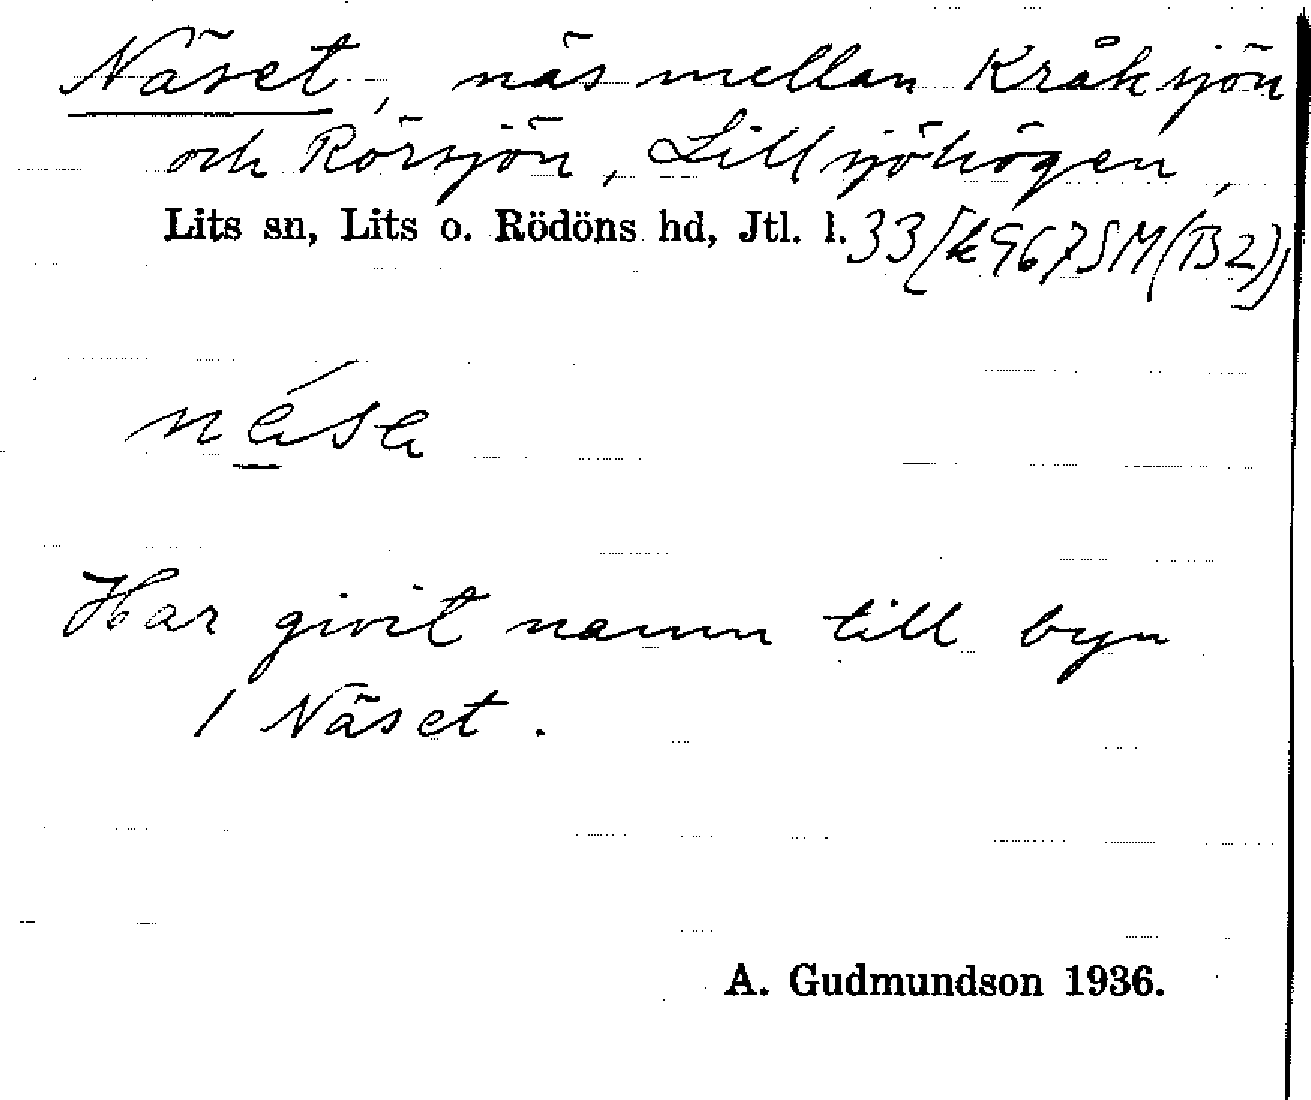 Näset, näs mellan Kråksjön
och Rörsjön, Lillsjöhögen,
Lits sn, Lits o. Rödöns hd, Jtl. l. 33 [k 967 SM (B2)]
Har givit namn till byn
1 Näset.
A. Gudmundson 1936.